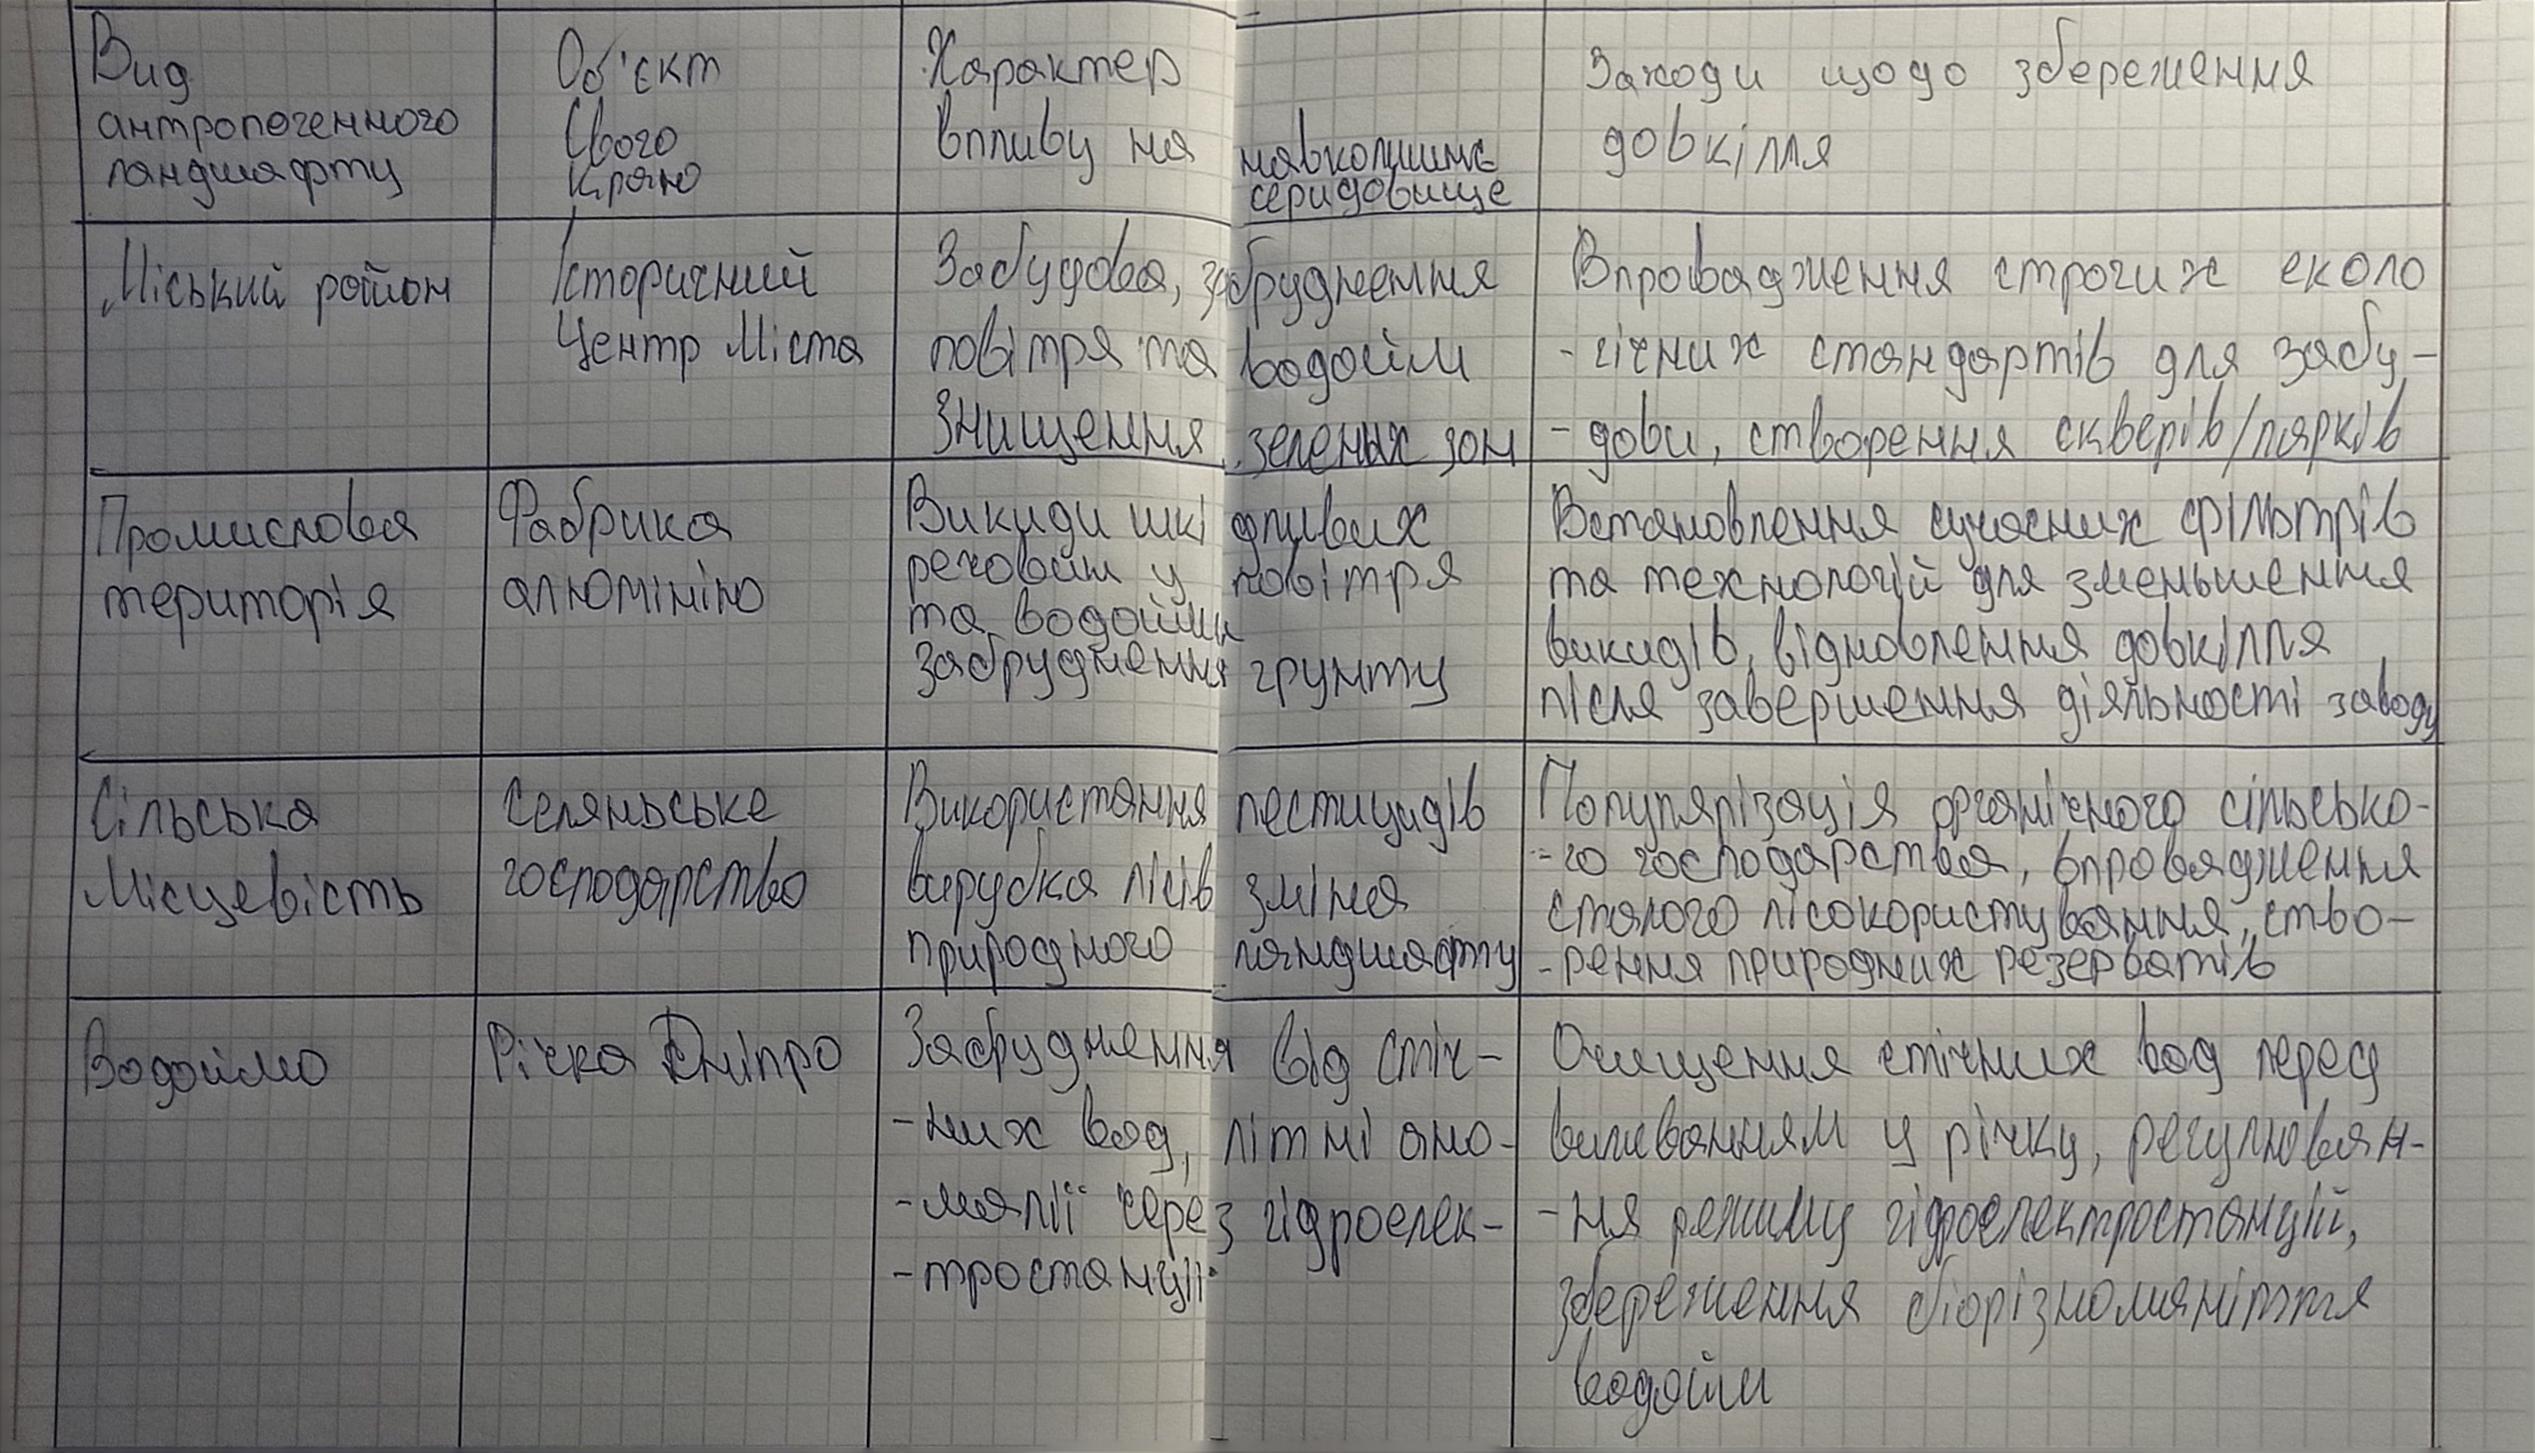 Вид
антропогенного
ландшафту
Об'єкт
Свого
Краю
Характер
впливу на навколишнє
серидовище
Заходи щодо збереження
довкілля
Міський район
Історичний
Центр Міста
Забудова, забруднення
повітря та водойм
Знищення зелених зон
Впровадження строгих еколо
-гічних стандартів для забу-
-дови, створення скверів/парків
Промислова
територія
Фабрика
алюмінію
Викиди шкідливих
речовин у повітря
та водойми
забруднення грунту
Встановлення сучасних фільтрів
та технологій для зменьшення
викидів, відновлення довкілля
після завершення діяльності заводу
Сільська
Місцевість
Селяньське
господарство
Використання пестицидів
вирубка лісів зміна
природного ландшафту
Популярізація органічного сільсько-
-го господарства, впровадження
сталого лісокористування, ство-
-рення природних резерватів
Водоймо
Річка Дніпро
Забруднення від стіч-
-них вод, літні ано-
-малії через гідроелек-
-тростанції
Очищення стічних вод перед
виливанням у річку, регулюван-
-ня режиму гідроелектростанцій,
збереження біорізноманіття
водойм